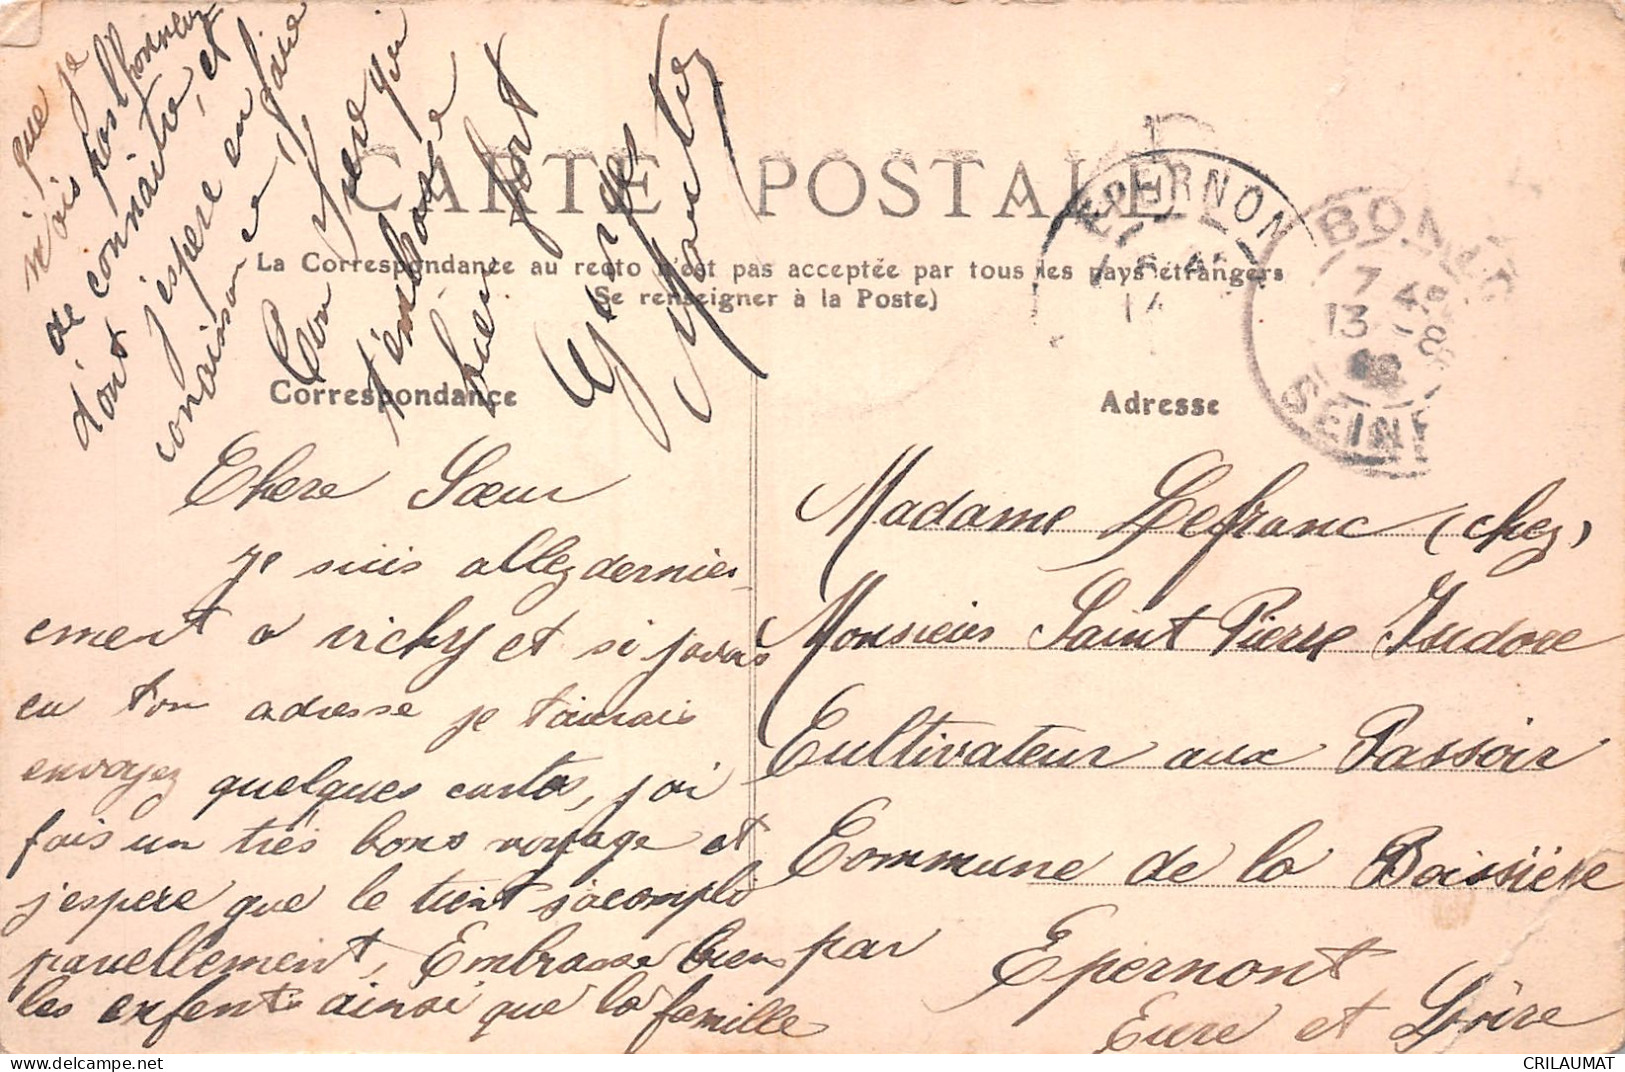 CARTE POSTALE
La Correspondance au recto n'est pas acceptée par tous les pays étrangers
Se renseigner à la Poste)
Correspondance
Adresse
EPERNON
BON
7
13
SEINE
Chere Sœur
Je suis allez dernier
ement a vichy et si javais
eu ton adresse je taurais
envoyez quelques cartes, j'ai
fais un très bons voyage et
j'espere que le tient s'acompli
pareillement, Embrasse bien
les enfents ainsi que la famille
que je
n'ais pas l'honneur
de connaitre, et
dont j'espere en faire
conaissance,
Ton frere qui
t'embrasse
bien fort
Georges
Madame Lefranc (chez)
Monsieur Saint Pierre Isidore
Cultivateur aux Passoir
Commune de la Boissière
par Epernont
Eure et Loire
CRILAUMAT